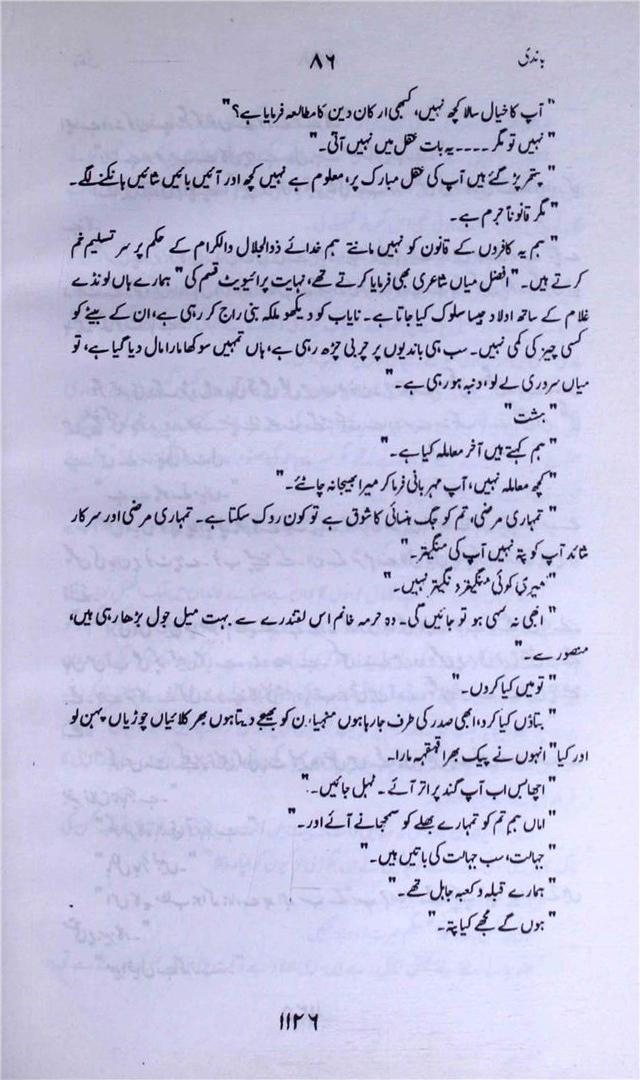 باندی
۸۶
"آپ کا خیال سالا کچھ نہیں، کبھی ارکان دین کا مطالعہ فرمایا ہے؟"
"نہیں تو مگر ۔۔۔۔ یہ بات عقل میں نہیں آتی۔"
"پتھر پڑ گئے ہیں آپ کی عقل مبارک پر، معلوم ہے نہیں کچھ اور آئیں بائیں شائیں ہانکنے لگے۔
"مگر قانوناً جرم ہے۔
"ہم یہ کافروں کے قانون کو نہیں مانتے ہم خدائے ذوالجلال والاکرام کے حکم پر سر تسلیم خم
کرتے ہیں۔" افضل میاں شاعری بھی فرمایا کرتے تھے، نہایت پرائیویٹ قسم کی "ہمارے ہاں لونڈے
غلام کے ساتھ اولاد جیسا سلوک کیا جاتا ہے۔ نایاب کو دیکھو ملکہ بنی راج کر رہی ہے، ان کے بیٹے کو
کسی چیز کی کمی نہیں۔ سب ہی باندیوں پر چربی چڑھ رہی ہے، ہاں تمہیں سوکھا مارا مال دیا گیا ہے، تو
میاں سروری لے لو، دنبہ ہو رہی ہے۔"
"ہشت"
"ہم کہتے ہیں آخر معاملہ کیا ہے۔"
"کچھ معاملہ نہیں، آپ مہربانی فرما کر میرا بھیجا نہ چاٹئے۔"
"تمہاری مرضی، تم کو جگ ہنسائی کا شوق ہے تو کون روک سکتا ہے۔ تمہاری مرضی اور سرکار
شائد آپ کو پتہ نہیں آپ کی منگیتر۔"
"میری کوئی منگیتر ونگیتر نہیں۔"
"ابھی نہ سہی ہو تو جائیں گی۔ وہ حرمہ خانم اس لفندرے سے بہت میل جول بڑھا رہی ہیں،
منصورے۔"
"تو میں کیا کروں۔"
"بتاؤں کیا کرو، ابھی صدر کی طرف جا رہا ہوں کو بھیجے دیتا ہوں بھر کلائیاں چوڑیاں پہن لو
اور کیا" انہوں نے پیک بھرا قہقہہ مارا۔
"اچھا بس اب آپ گند پر اتر آئے۔ ٹہل جائیں۔"
"اماں ہم تم کو تمہارے بھلے کو سمجھانے آئے اور۔"
"جہالت، سب جہالت کی باتیں ہیں۔"
"ہمارے قبلہ و کعبہ جاہل تھے۔"
"ہوں گے مجھے کیا پتہ۔"
۱۱۲۶